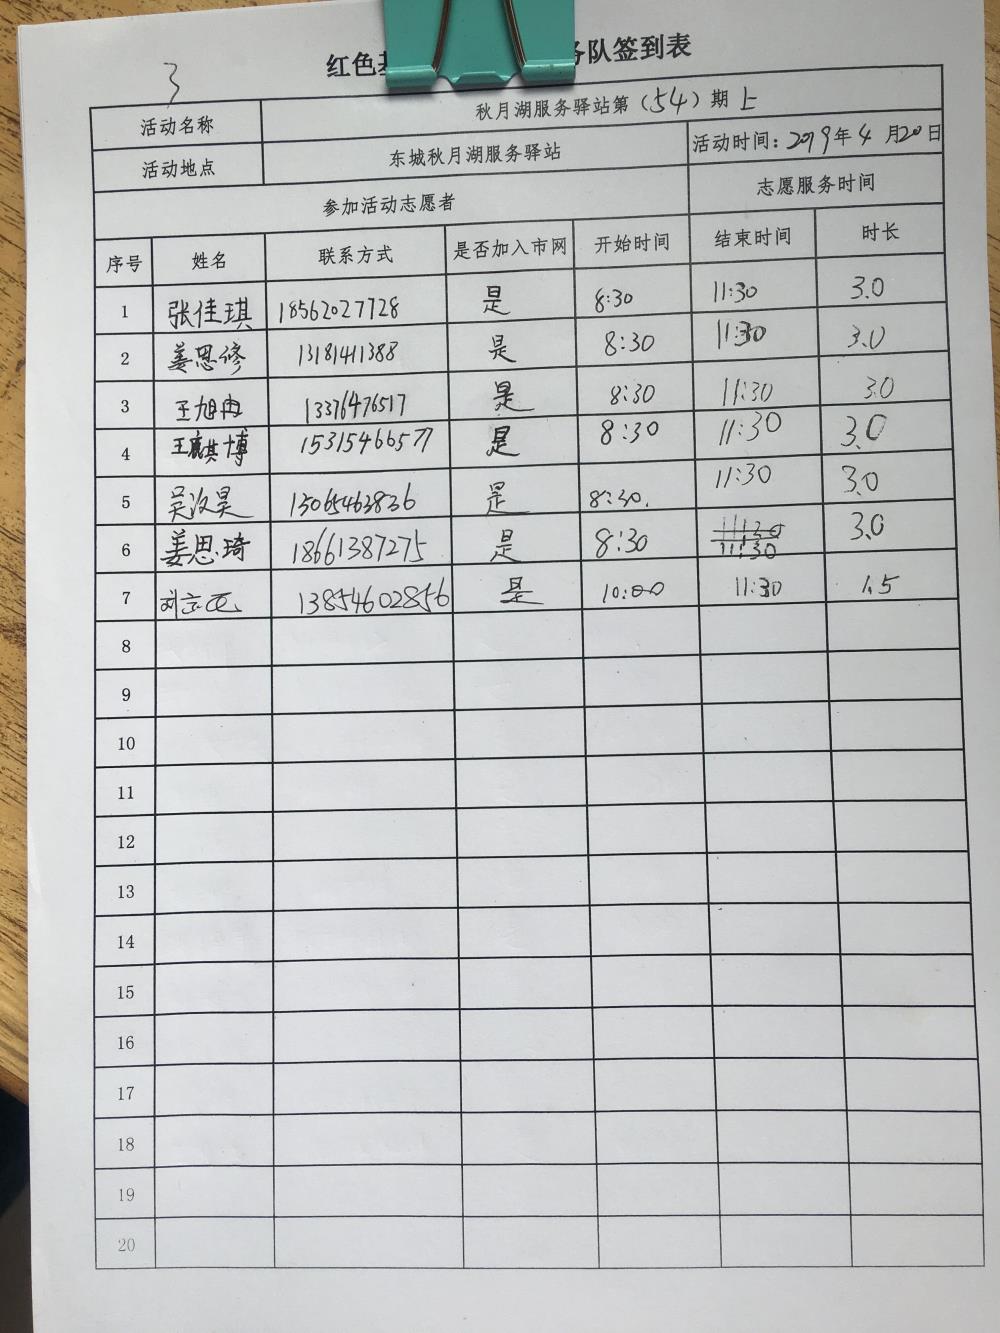 3
红色 务队签到表
活动名称 秋月湖服务驿站第（54）期 上
活动地点 东城秋月湖服务驿站 活动时间：2019年4月20日
参加活动志愿者 志愿服务时间
序号 姓名 联系方式 是否加入市网 开始时间 结束时间 时长
1 张佳琪 18562027728 是 8:30 11:30 3.0
2 姜思修 13181411388 是 8:30 11:30 3.0
3 王旭冉 13376476517 是 8:30 11:30 3.0
4 王麒博 15315466577 是 8:30 11:30 3.0
5 吴汶昊 13065463836 是 8:30. 11:30 3.0
6 姜思琦 18661387275 是 8:30 11:30 3.0
7 刘 13854602856 是 10:00 11:30 1.5
8
9
10
11
12
13
14
15
16
17
18
19
20